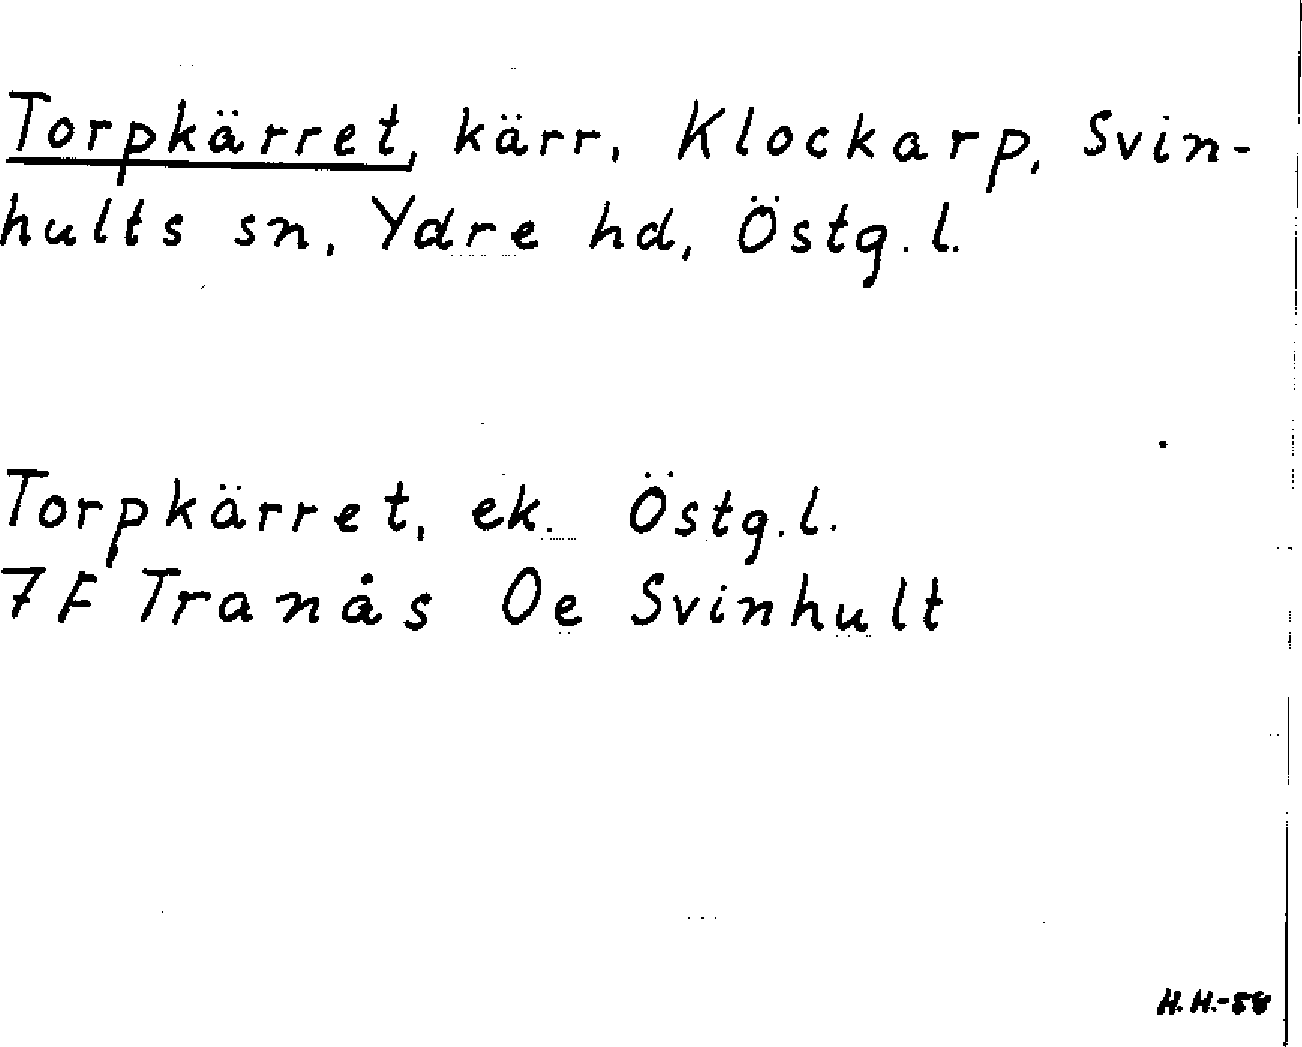 Torpkärret, kärr, Klockarp, Svin-
hults sn, Ydre hd, Östg.l.
Torpkärret, ek. Östg.l.
7F Tranås Oe Svinhult
H.H.-58